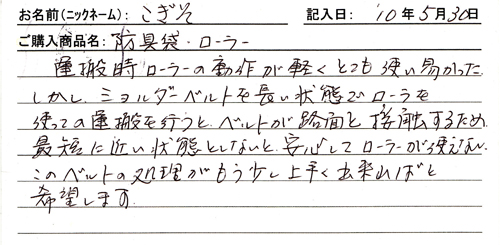 お名前(ニックネーム): こぎそ 記入日: '10年5月30日
ご購入商品名: 防具袋・ローラー
運搬時ローラーの動作が軽くとても使い易かった
しかし、ショルダーベルトを長い状態でローラを
使っての運搬を行うと、ベルトが路面と接触するため
最短に近い状態としないと、安心してローラーが使えない
このベルトの処理がもう少し上手く出来ればと
希望します